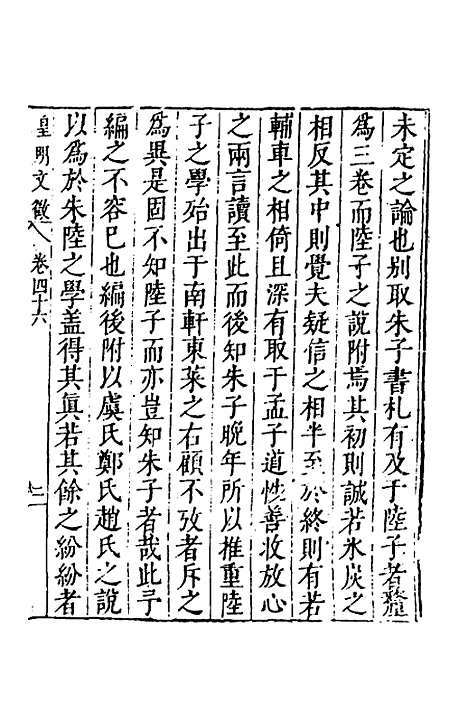 未定之論也別取朱子書札有及于陸子者釐
為三卷而陸子之說附焉其初則誠若氷炭之
相反其中則覺夫疑信之相半至於終則有若
輔車之相倚且深有取于孟子道性善收放心
之兩言讀至此而後知朱子晚年所以推重陸
子之學殆出于南軒東萊之右顧不攷者斥之
為異是固不知陸子而亦豈知朱子者哉此予
編之不容已也編後附以虞氏鄭氏趙氏之說
以為於朱陸之學盖得其眞若其餘之紛紛者
皇明文徵 卷四十六 二